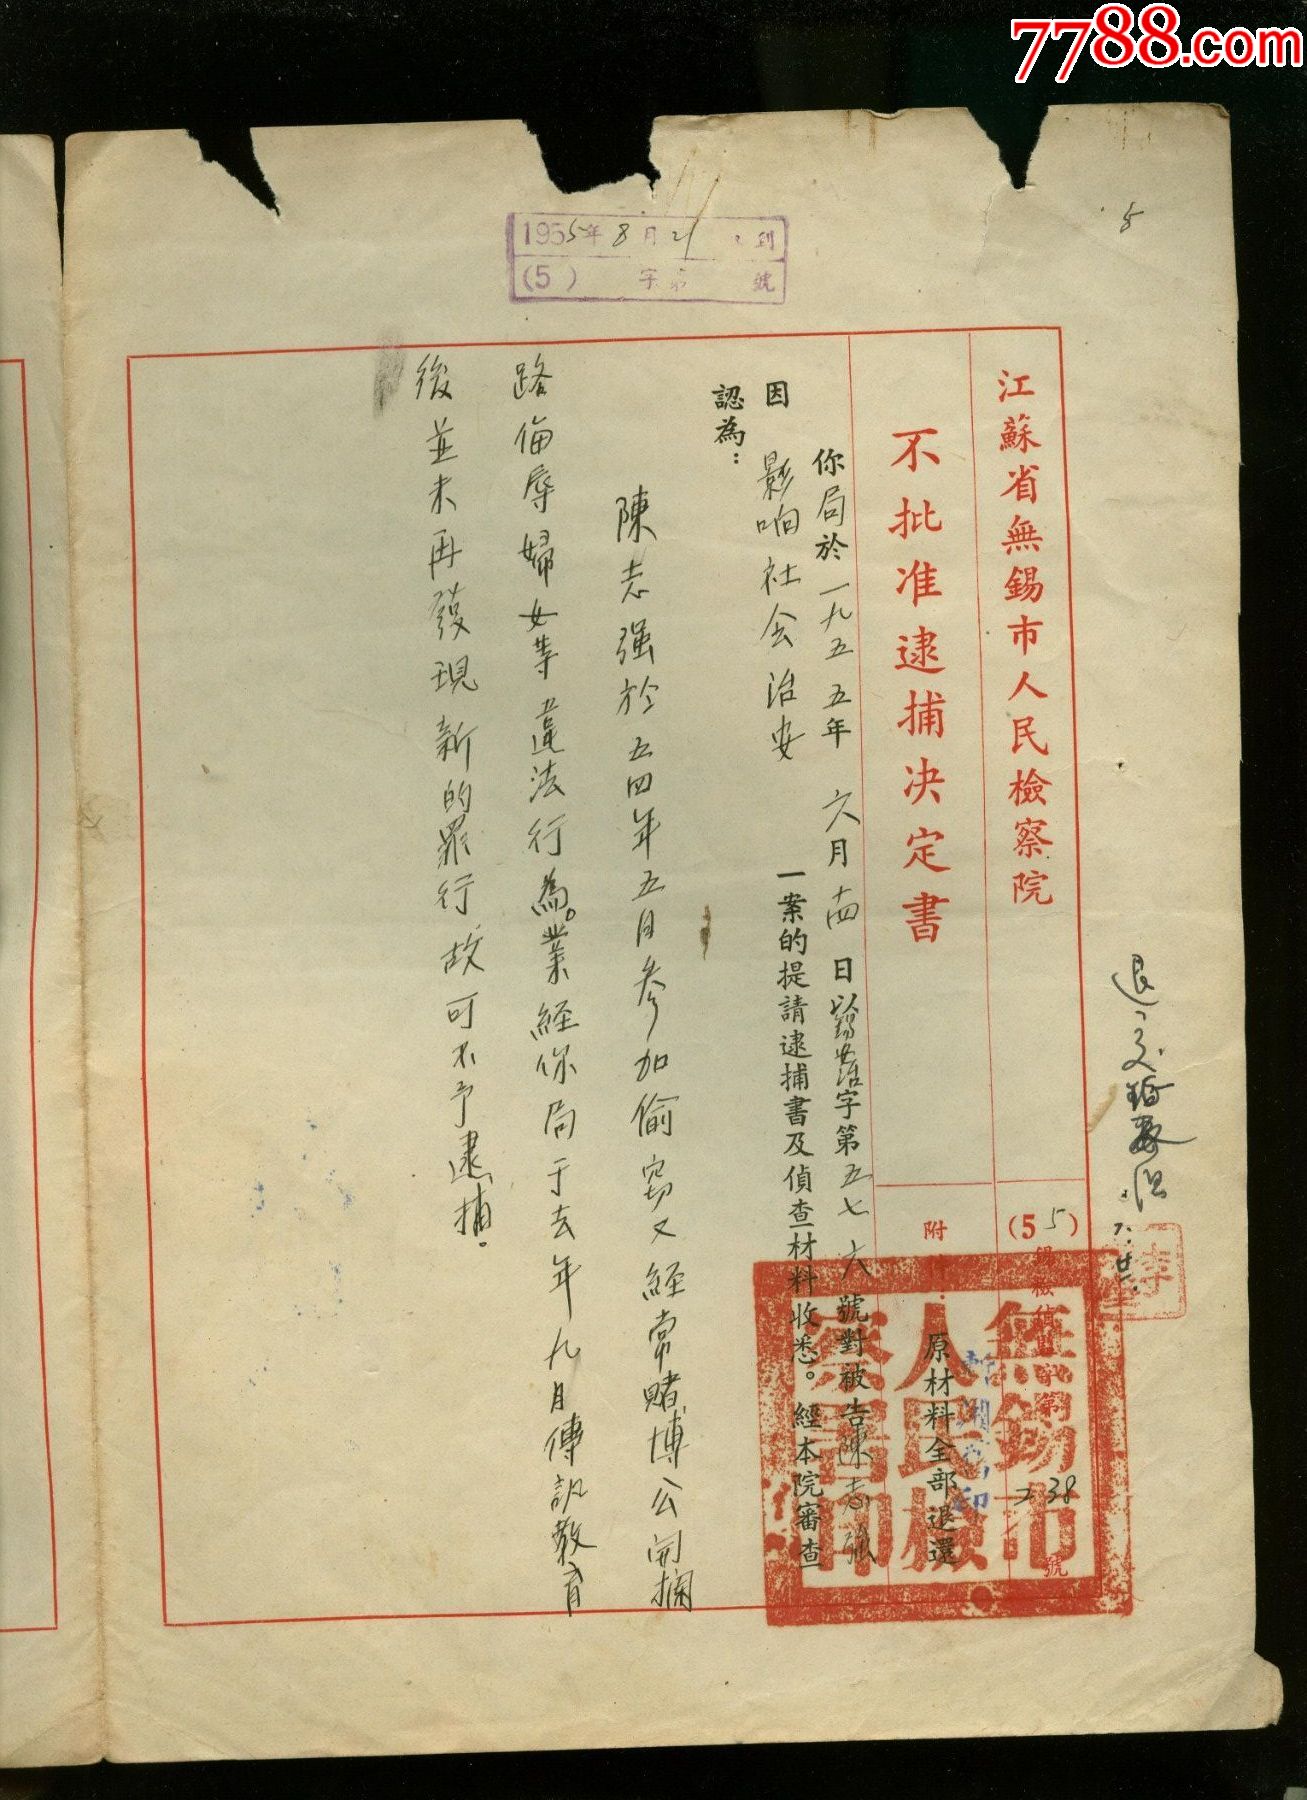 7788.com
1955年8月21日到
(5) 字第 號
5
江蘇省無錫市人民檢察院
(55)錫檢偵 字第 238 號
不批准逮捕决定書
附件：原材料全部退還
你局於一九五五年六月十四日 字第五七六號對被告陳志強
因影响社会治安一案的提請逮捕書及偵查材料收悉。經本院審查
認為：
陳志强於五四年五月参加偷窃又经常賭博公開攔
路侮辱婦女等違法行為。業經你局于去年九月傳訊教育
後並未再發現新的罪行故可不予逮捕。
無錫市人民檢察院印